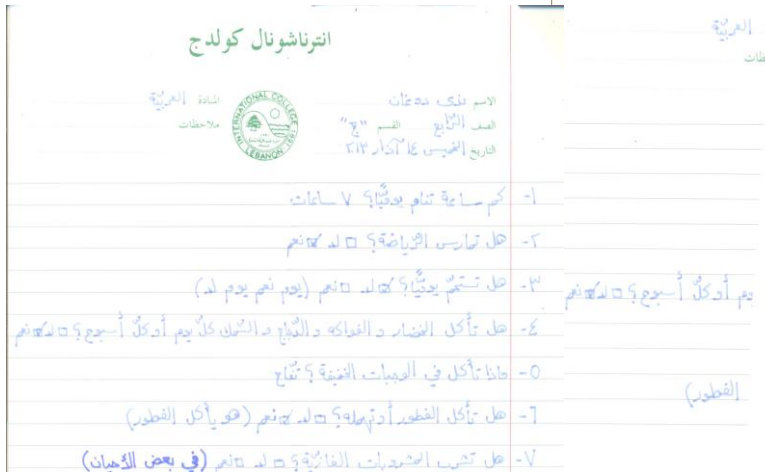 انترناشونال كولدج
الاسم
المادة العربيّة
الصف الرّابع القسم "ج"
ملاحظات
التاريخ الخميس ١٤ آذار ٢٠١٣
INTERNATIONAL COLLEGE
LEBANON
١- كم ساعة تنام يوميًّا؟ ٧ ساعات
٢- هل تمارس الرّياضة؟ لا نعم
٣- هل تستحمّ يوميًّا؟ لا نعم (يوم نعم يوم لا)
٤- هل تأكل الخضار و الفواكه و الدّجاج و السّمك كلّ يوم أو كلّ أسبوع؟ لا نعم
٥- ماذا تأكل في الوجبات الخفيفة؟ تفّاح
٦- هل تأكل الفطور أو تهمله؟ لا نعم (هو يأكل الفطور)
٧- هل تشرب المشروبات الغازيّة؟ لا نعم (في بعض الأحيان)
العربيّة
يوم أو كلّ أسبوع؟ لا نعم
الفطور)